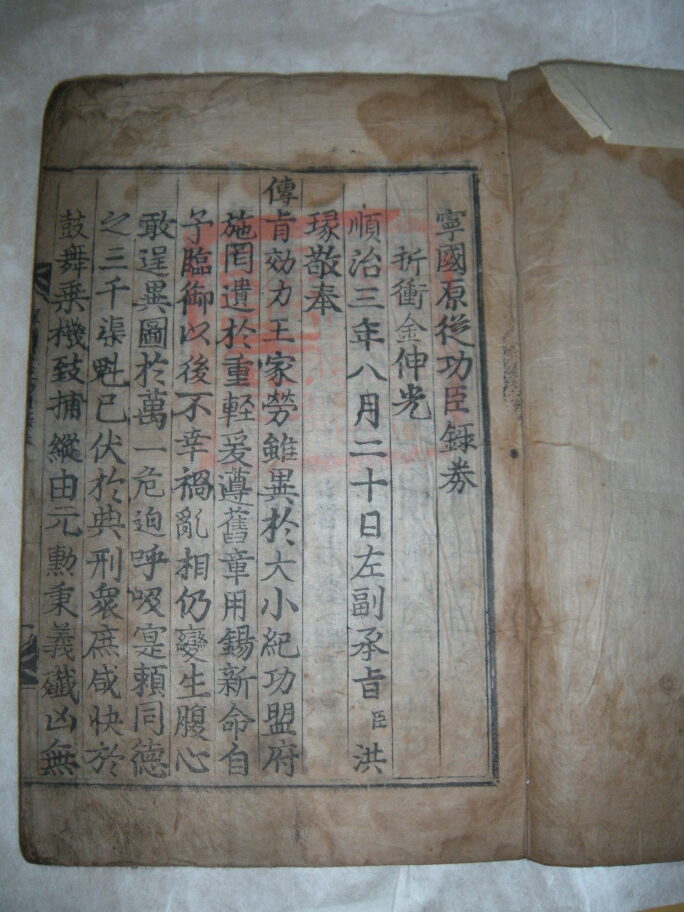 寧國原從功臣錄券
折衝金伸光
順治三年八月二十日左副承旨臣洪
瑑敬奉
傳旨効力王家勞雖異於大小紀功盟府
施罔遺於重輕爰遵舊章用錫新命自
予臨御以後不幸禍亂相仍變生腹心
敢逞異圖於萬一危迫呼吸寔賴同德
之三千渠魁已伏於典刑衆庶咸快於
鼓舞乘機致捕縱由元勳秉義殲凶無